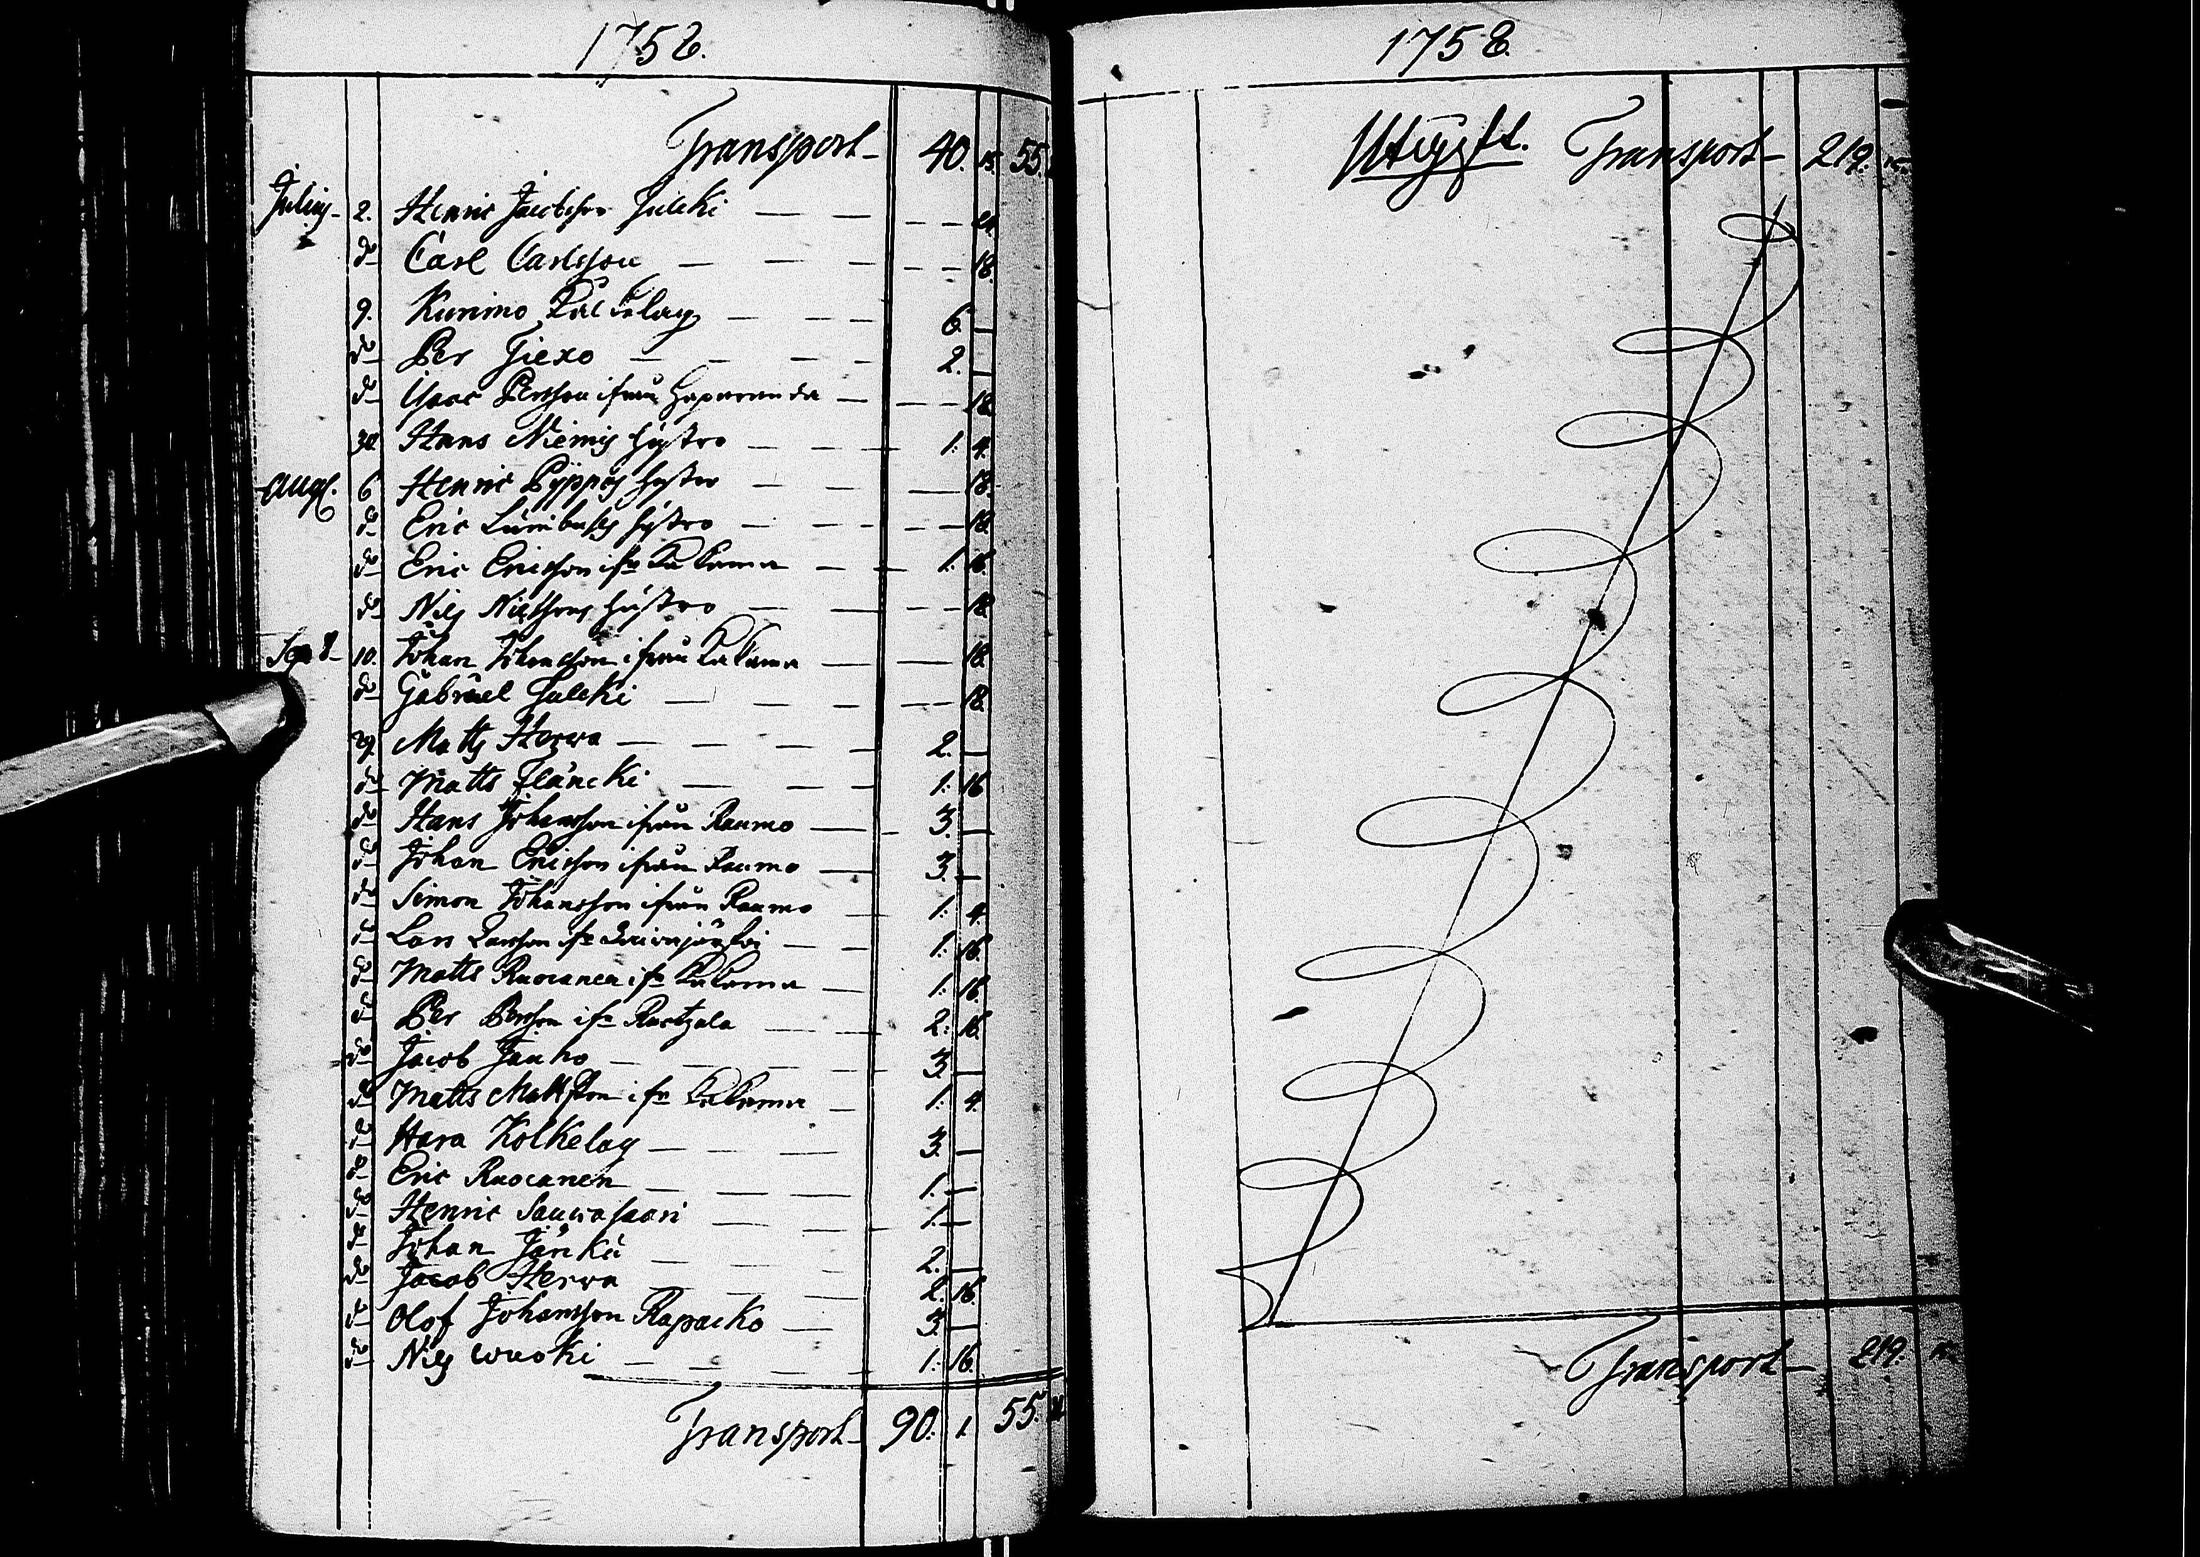 1758.
Transport 40. 15. 55.
Julius 2. Henric Jacobsson Juleki 24
do Carl Carlsson 18.
9. Kunimo 6. —
do Per Tiexo 2. —
do Isaac Persson ifrån Haparanda 18
30 Hans Niemis hustro 1. 4.
Aug. 6 Henric Pyppös hustro 18.
do Eric Lumbuses hustro 18.
do Eric Ericsson ifr Kakama 1. 16.
do Nils Nilssons hustro 18.
10. Johan Johansson ifrån Kakama 18.
do Gabriel Juleki 18.
29. Matts Herva 2. —
do Matts Fläncki 1. 16
do Hans Johansson ifrån Raumo 3. —
do Johan Ericsson ifrån Raumo 3. —
do Simon Johansson ifrån Raumo 1. 4.
do Lars Larsson ifr 1. 16.
do Matts Ruocanen ifr Kakama 1. 16.
do Per Persson ifr Ruetzala 2. 16.
do Jacob Jauho 3. —
do Matts Mattsson ifr Kakama 1. 4.
do Hara Kolkelag 3. —
do Eric Ruocanen 1. —
do Henric Sauvosaari 1. —
do Johan Jänkä 2. —
do Jacob Herva 2. 16.
do Olof Johansson Rapacko 3. —
do Nils Wuoki 1. 16.
Transport 90. 1. 55.
1758.
Utgift. Transport 219.
Transport 219.